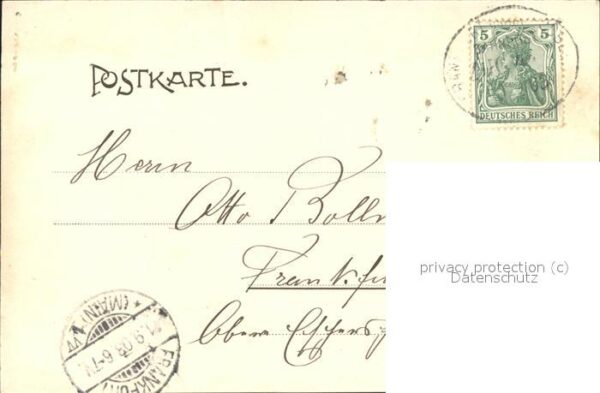 POSTKARTE.
5 5
DEUTSCHES REICH
Herrn
Otto Boll
Frankfu
privacy protection (c)
Datenschutz
Obere
FRANKFURT
(MAIN)